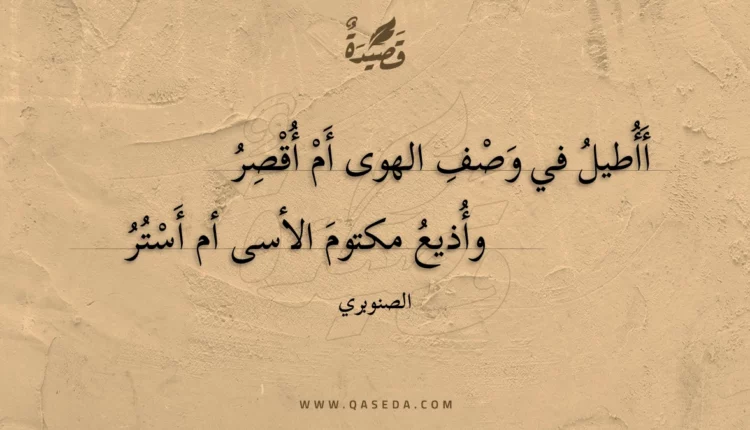 قَصِيدَةٌ
أَأُطيلُ في وَصْفِ الهوى أَمْ أُقْصِرُ
وأُذيعُ مكتومَ الأسى أم أَسْتُرُ
الصنوبري
WWW.QASEDA.COM